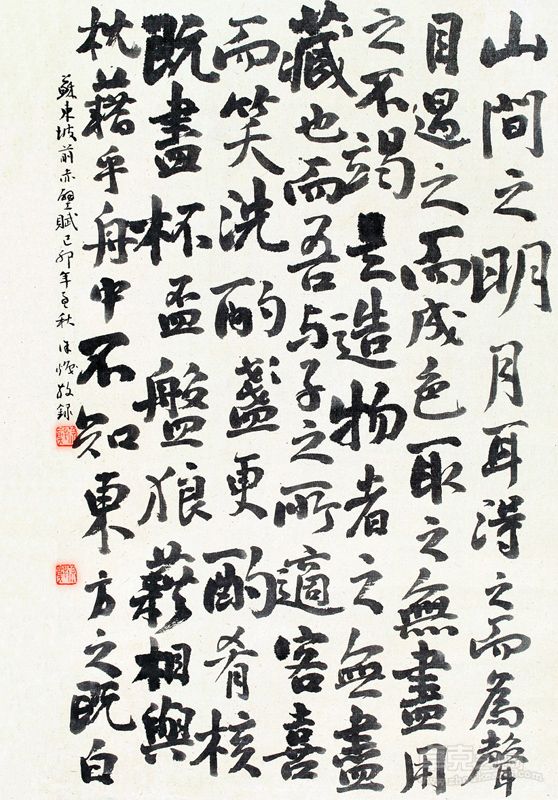 山間之明月耳得之而為聲
目遇之而成色取之無盡用
之不竭是造物者之無盡
藏也而吾与子之所適客喜
而笑洗酌盞更酌肴核
既盡杯盃盤狼藉相與
枕藉乎舟中不知東方之既白
蘇東坡前赤壁賦己卯年秋錄